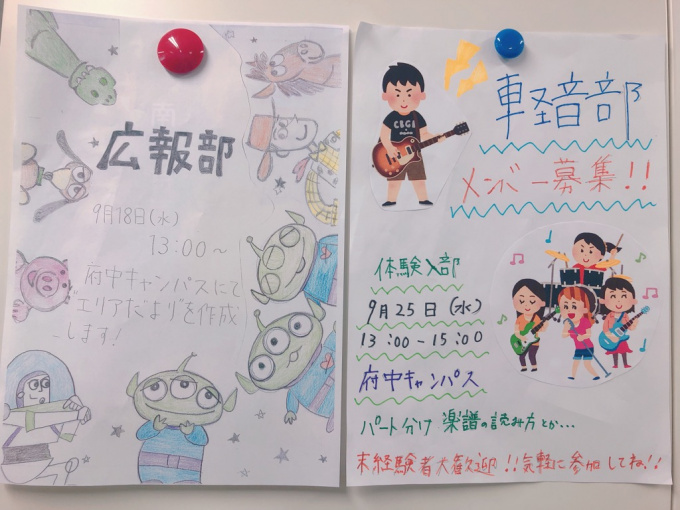 広報部
9月18日(水)
13:00~
府中キャンパスにて
エリアだよりを作成
します!
軽音部
メンバー募集!!
CBGB
体験入部
9月25日(水)
13:00-15:00
府中キャンパス
パート分け 楽譜の読み方とか...
未経験者大歓迎!!気軽に参加してね!!